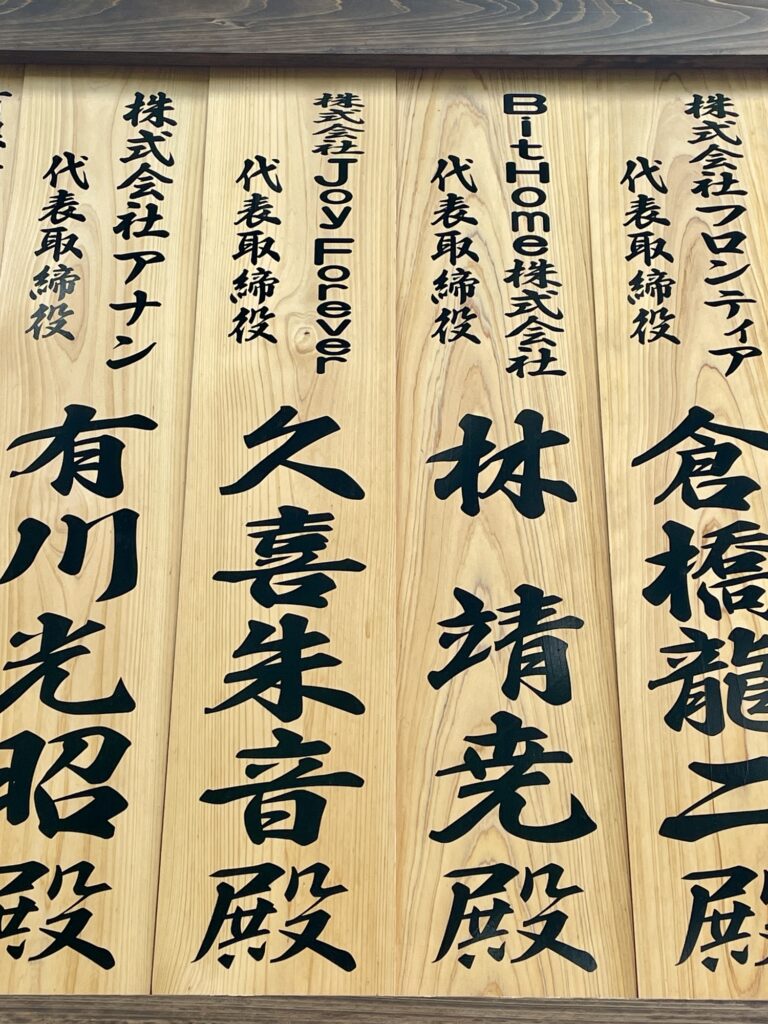 株式会社フロンティア
代表取締役
倉橋龍二殿
BitHome株式会社
代表取締役
林靖尭殿
株式会社Joy Forever
代表取締役
久喜朱音殿
株式会社アナン
代表取締役
有川光昭殿